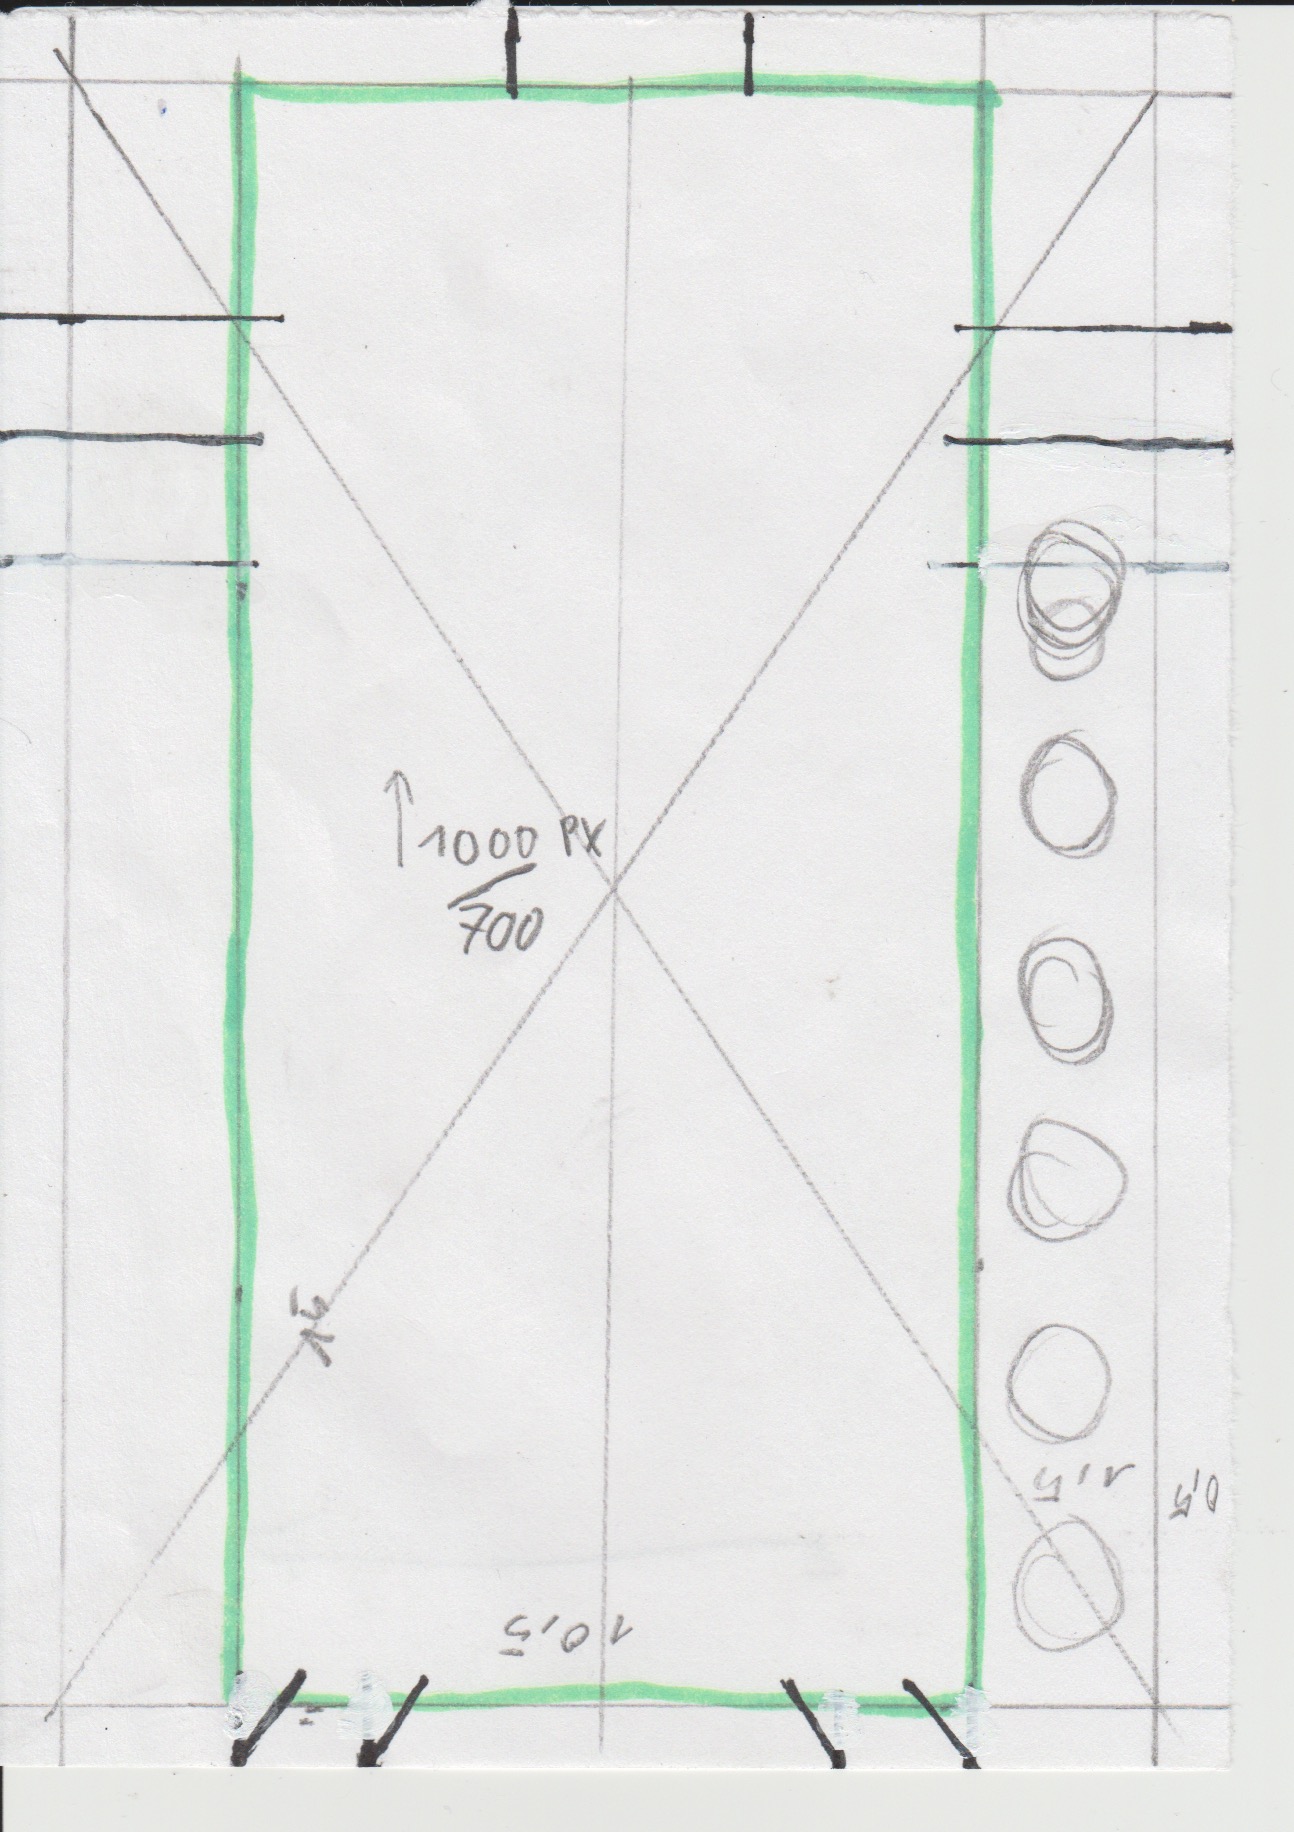 1000 PX
700
1,5
0,5
10,5